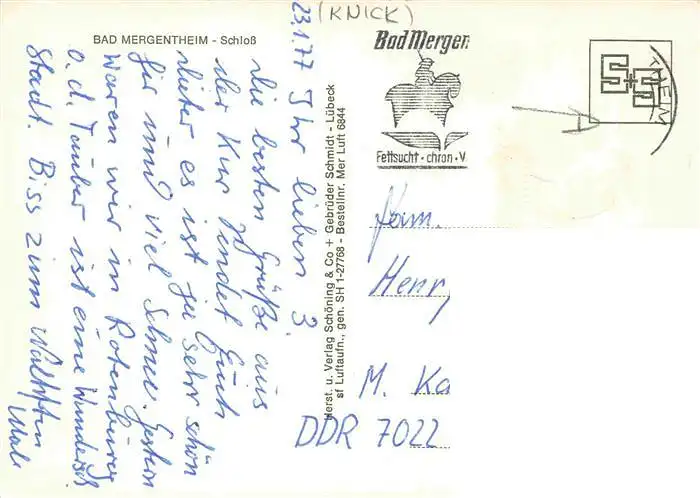 (KNICK)
BAD MERGENTHEIM - Schloß
23.1.77 Ihr lieben 3
die besten Grüße aus
der Kur sendet Euch
dieter es ist ja sehr schön
hir und viel Schnee. Gestern
waren wir in Rotenburg
o.d. Tauber ist eine Wundersch
Stadt. Biss zum
Herst. u. Verlag Schöning & Co + Gebrüder Schmidt - Lübeck
sf Luftaufn., gen. SH 1-27768 - Bestellnr. Mer Luft 6844
Bad Mergen
Fettsucht · chron · V
HEIM
Fam.
Henry
M. Ka
DDR 7022